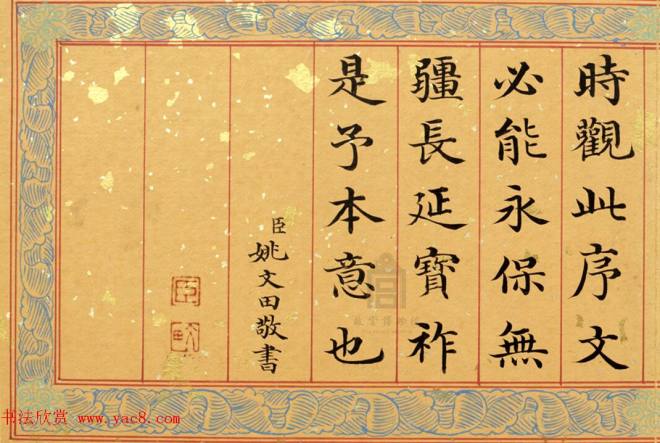 時觀此序文
必能永保無
疆長延寶祚
是予本意也
臣姚文田敬書
臣
故宮博物院
书法欣赏 www.yac8.com